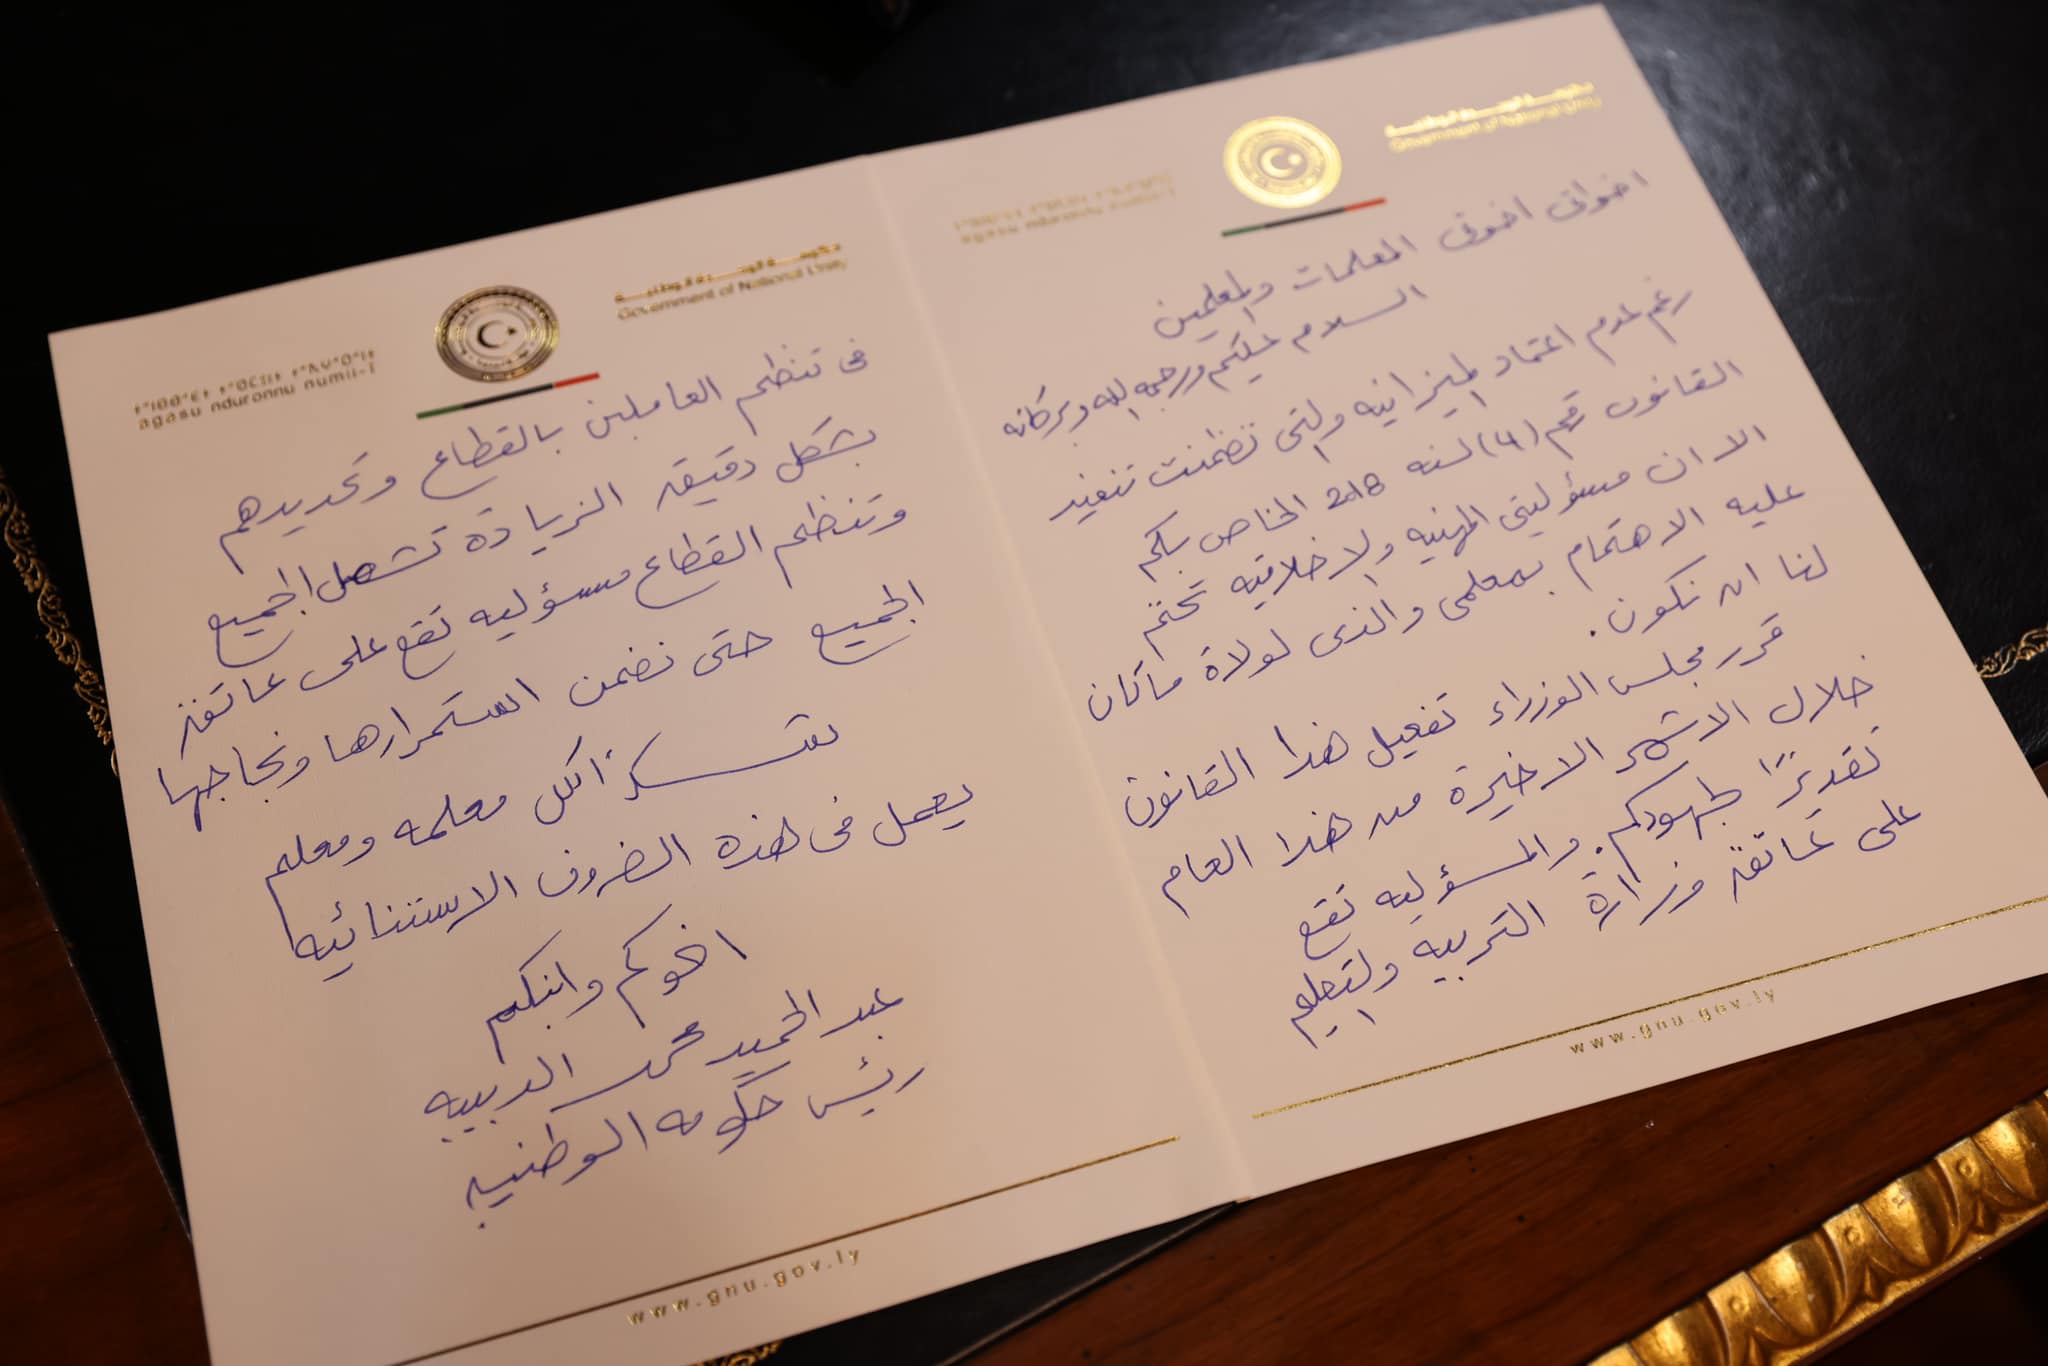 حكومة الوحدة الوطنية
Government of National Unity
agasu nduronnu numii-t
اخواتى اخوتى المعلمات والمعلمين
السلام عليكم ورحمه الله وبركاته
رغم عدم اعتماد الميزانيه والتى تضمنت تنفيذ
القانون رقم (4) لسنه 2018 الخاص بكم
الا ان مسؤوليتى المهنيه والاخلاقيه تحتم
عليه الاهتمام بمعلمى والذى لولاة ماكان
لنا ان نكون.
قرر مجلس الوزراء تفعيل هذا القانون
خلال الاشهر الاخيرة من هذا العام
تقديرًا لجهودكم. والمسؤليه تقع
على عاتقة وزارة التربيه والتعليم
www.gnu.gov.ly
حكومة الوحدة الوطنية
Government of National Unity
agasu nduronnu numii-t
فى تنظم العاملين بالقطاع وتحديدهم
بشكل دقيقة الزيادة تشمل الجميع
وتنظم القطاع مسؤليه تقع على عاتقة
الجميع حتى نضمن استمرارها ونجاحها
شكرًا لكل معلمه ومعلم
يعمل فى هذه الضروف الاستثنائيه
اخوكم وابنكم
عبد الحميد محمد الدبيبه
رئيس حكومه الوطنيه
www.gnu.gov.ly